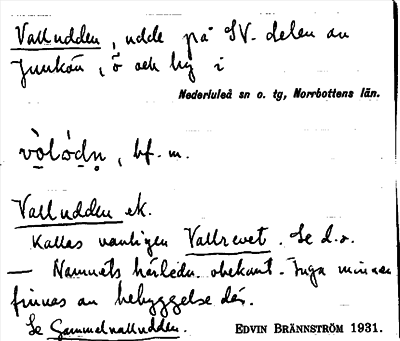 Valludden, udde på SV-delen av
Junkön, ö och by i
Nederluleå sn o. tg, Norrbottens län.
vò̞ló̞dn̥, bf. m.
Valludden ek.
Kallas vanligen Vallrevet. Se d.o.
— Namnets härledn. obekant. Inga minnen
finnes av bebyggelse där.
Se Gammelvalludden.
EDVIN BRÄNNSTRÖM 1931.